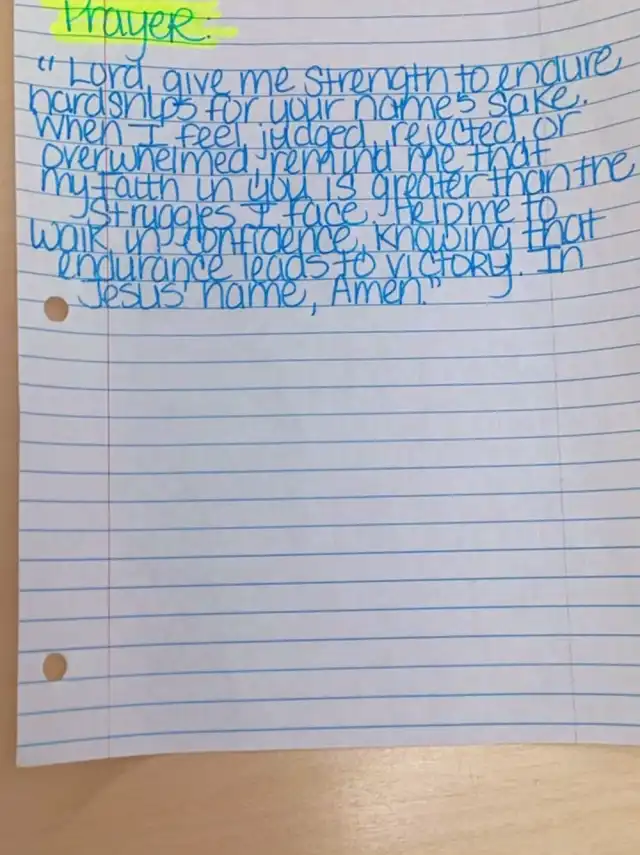 Prayer:
"Lord, give me strength to endure
hardships for your name's sake.
When I feel judged, rejected, or
overwhelmed, remind me that
my faith in you is greater than the
struggles I face. Help me to
walk in confidence, knowing that
endurance leads to victory. In
Jesus' name, Amen."